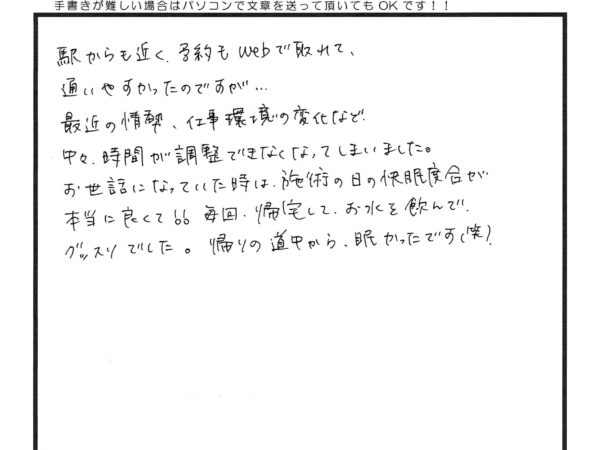 手書きが難しい場合はパソコンで文章を送って頂いてもOKです!!
駅からも近く、予約もwebで取れて、
通いやすかったのですが…
最近の情勢、仕事環境の変化など
中々、時間が調整できなくなってしまいました。
お世話になっていた時は、施術の日の快眠度合が
本当に良くて 毎回、帰宅して、お水を飲んで、
グッスリでした。帰りの道中から、眠かったです(笑)